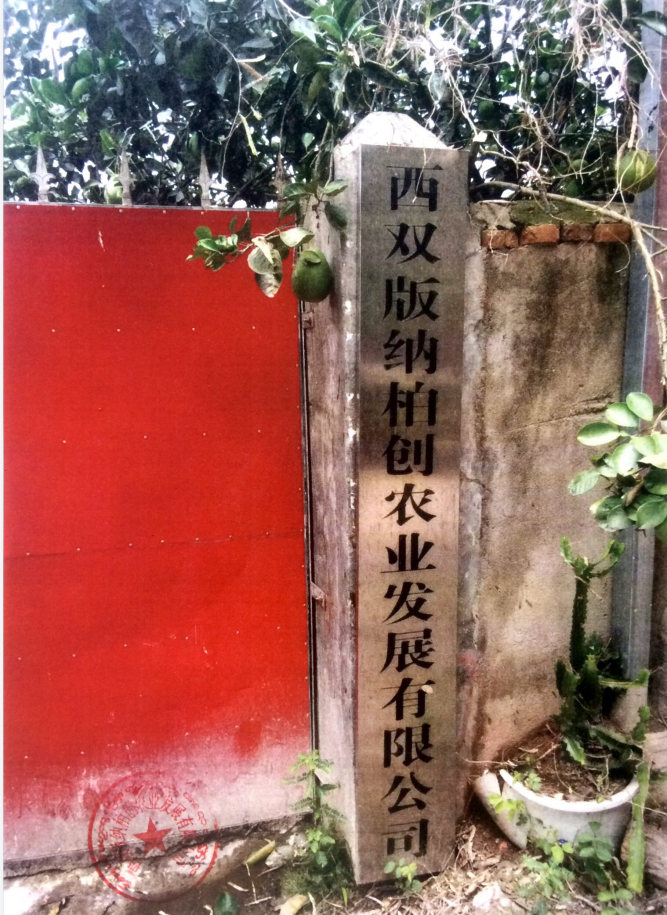 西双版纳柏创农业发展有限公司